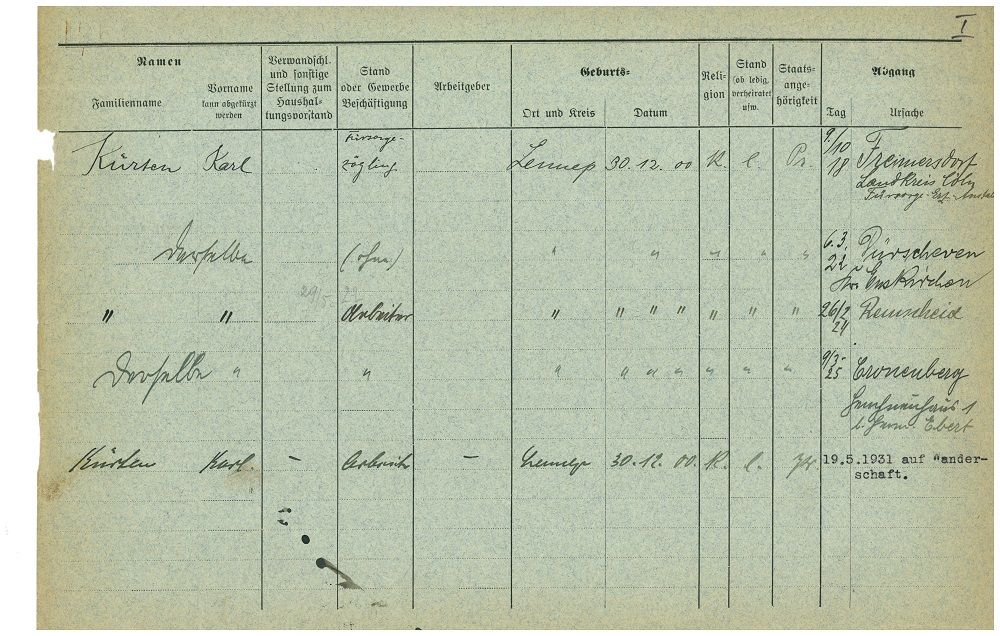 I
Namen
Familienname
Vorname
kann abgekürzt
werden
Verwandschl.
und sonstige
Stellung zum
Haushal-
tungsvorstand
Stand
oder Gewerbe
Beschäftigung
Arbeitgeber
Geburts-
Ort und Kreis
Datum
Reli-
gion
Stand
(ob ledig,
verheiratet
usw.
Staats-
ange-
hörigkeit
Abgang
Tag
Ursache
Kürten Karl Fürsorge-
zögling Lennep 30. 12. 00 K. l. Pr. 9/10
18 Fremersdorf
Landkreis Cöln
Fürsorge-Erz.-Anstalt
Derselbe (ohne) " " " " " 6.3.
22 Pürscheven
Krs. Euskirchen
29/5 22
" " Arbeiter " " " " " " " 26/2
24 Remscheid
Derselbe " " " " " " " " " 9/3.
25 Cronenberg
1
b. Herm. Ebert
Kürten Karl. – Arbeiter – Lennep 30.12. 00. K. l. Pr. 19.5.1931 auf Wander-
schaft.